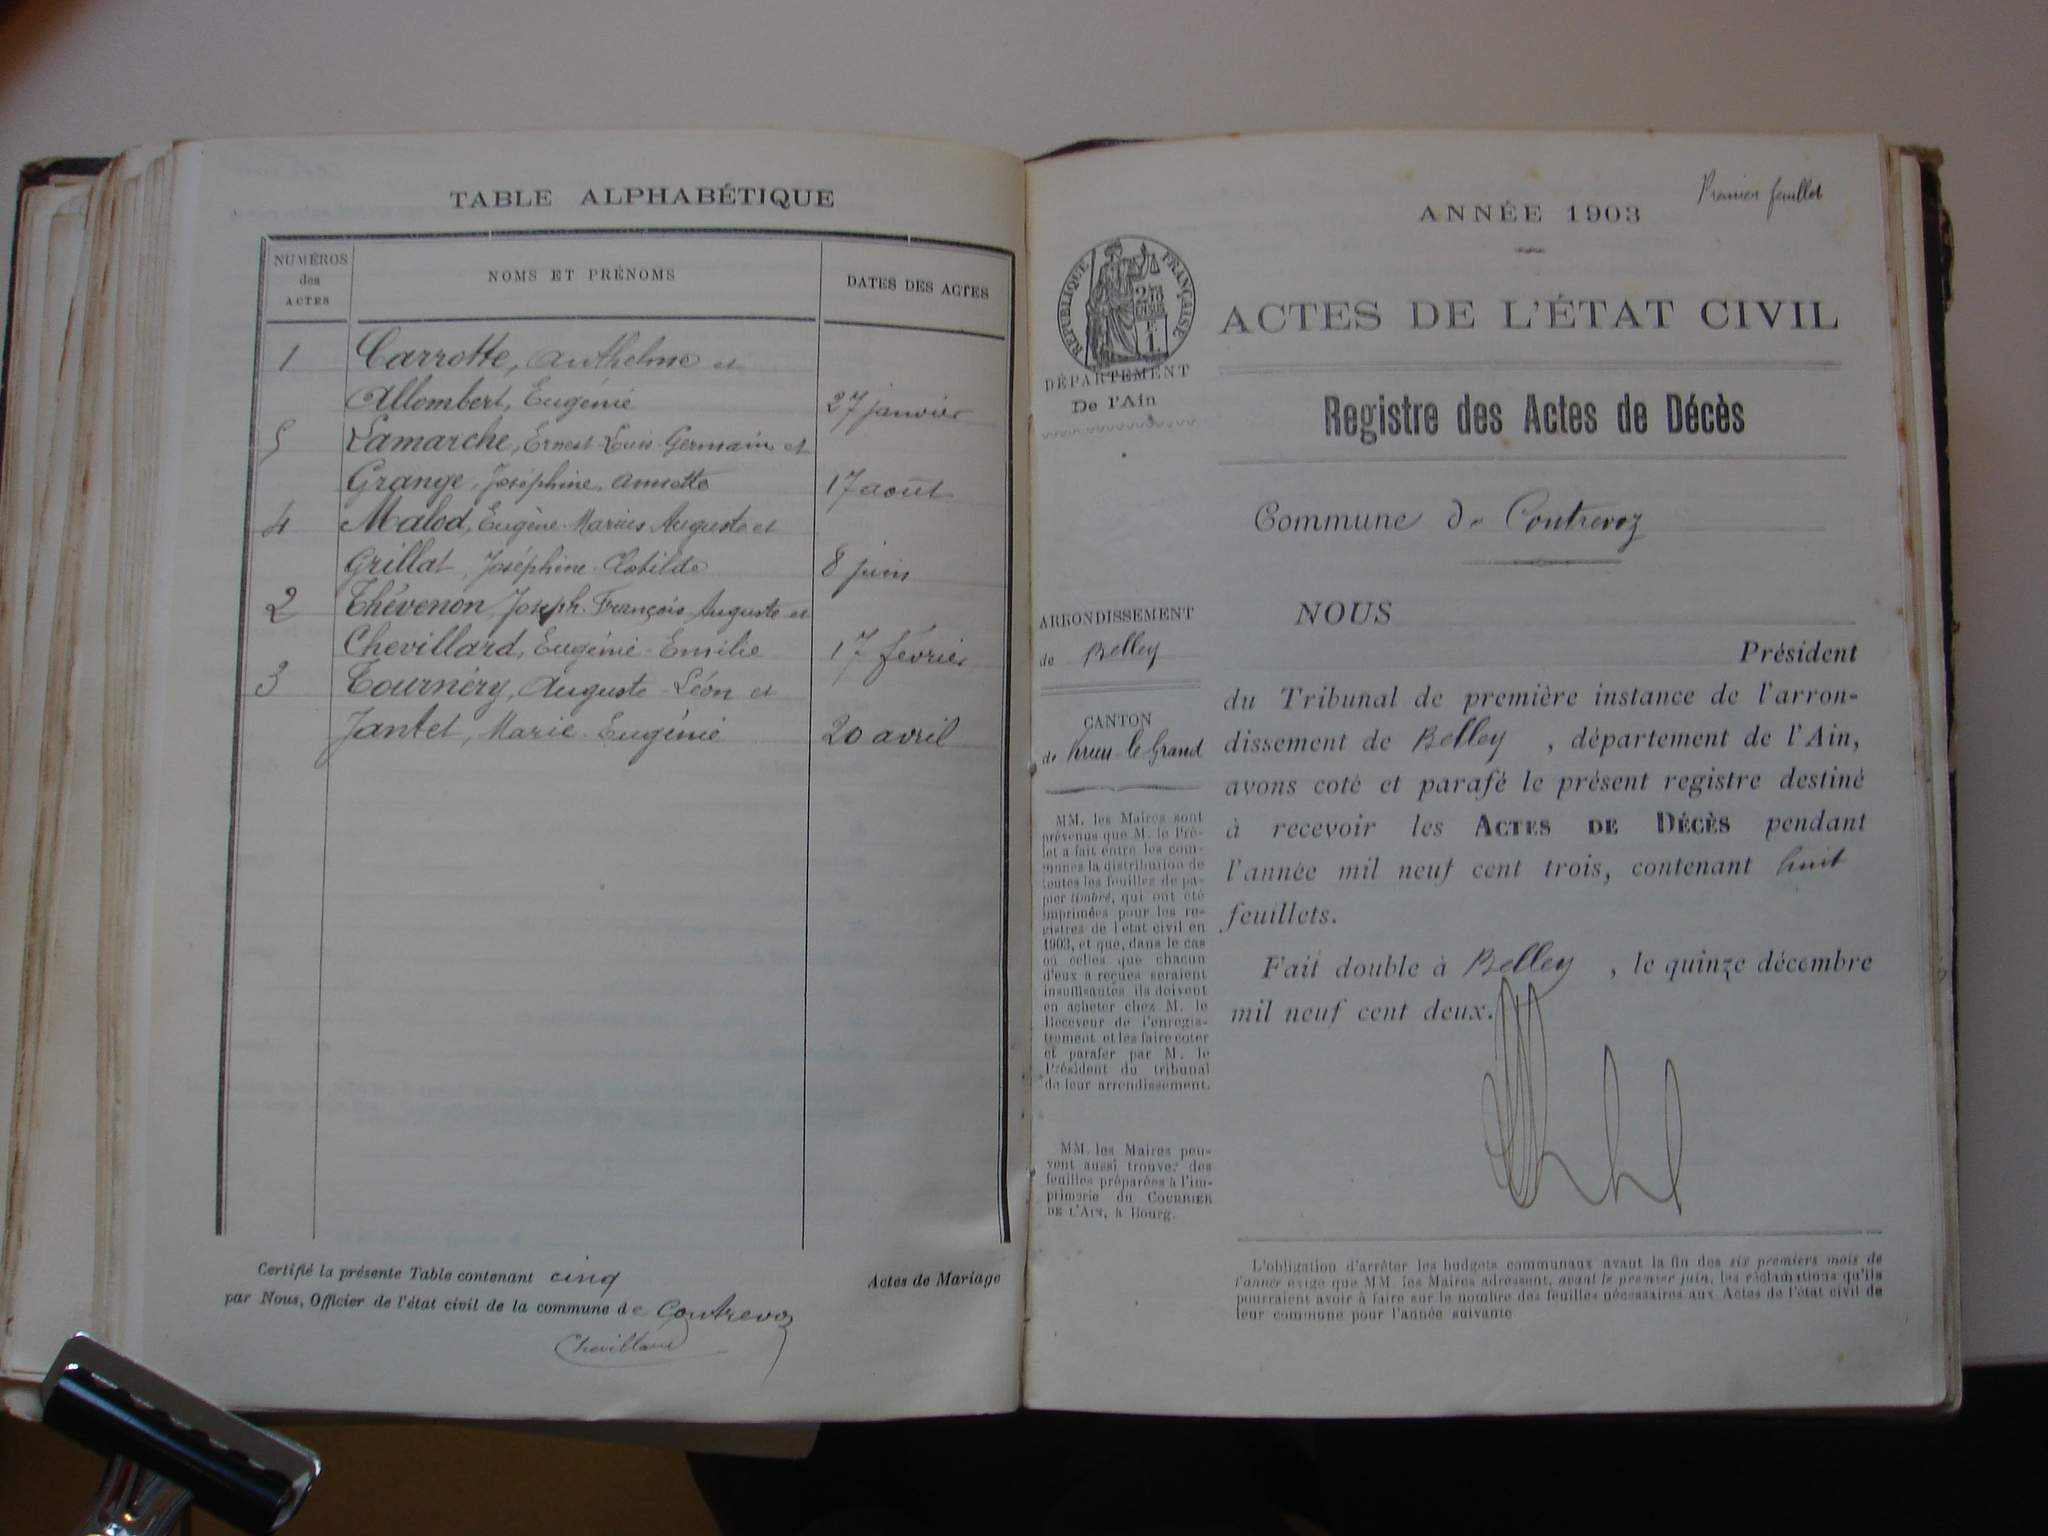 TABLE ALPHABÉTIQUE
NUMÉROS
des
ACTES
NOMS ET PRÉNOMS
DATES DES ACTES
1 Carrotte, Anthelme et
Allombert, Eugénie 27 janvier
5 Lamarche, Ernest-Louis-Germain et
Grange, Joséphine, Annette 17 août
4 Malod, Eugène-Marius Auguste et
Grillat, Joséphine-Clotilde 8 juin
2 Thévenon, Joseph-François-Auguste et
Chevillard, Eugénie-Emilie 17 février
3 Tournéry, Auguste-Léon et
Jantet, Marie-Eugénie 20 avril
Certifié la présente Table contenant cinq Actes de Mariage
par Nous, Officier de l'état civil de la commune de Contrevoz
Chevillard
Premier feuillet
ANNÉE 1903
RÉPUBLIQUE FRANÇAISE
ACTES DE L'ÉTAT CIVIL
DÉPARTEMENT
De l'Ain
Registre des Actes de Décès
Commune de Contrevoz
ARRONDISSEMENT
de Belley
CANTON
de Virieu-le-Grand
MM. les Maires sont
prévenus que M. le Pré-
fet a fait entre les com-
munes la distribution de
toutes les feuilles de pa-
pier timbré, qui ont été
imprimées pour les re-
gistres de l'état civil en
1903, et que, dans le cas
où celles que chacun
d'eux a reçues seraient
insuffisantes, ils doivent
en acheter chez M. le
Receveur de l'enregis-
trement et les faire coter
et parafer par M. le
Président du tribunal
de leur arrondissement.
MM. les Maires peu-
vent aussi trouver des
feuilles préparées à l'im-
primerie du COURRIER
DE L'AIN, à Bourg.
NOUS
Président
du Tribunal de première instance de l'arron-
dissement de Belley, département de l'Ain,
avons coté et parafé le présent registre destiné
à recevoir les ACTES DE DÉCÈS pendant
l'année mil neuf cent trois, contenant huit
feuillets.
Fait double à Belley, le quinze décembre
mil neuf cent deux.
L'obligation d'arrêter les budgets communaux avant la fin des six premiers mois de
l'année exige que MM. les Maires adressent, avant le premier juin, les réclamations qu'ils
pourraient avoir à faire sur le nombre des feuilles nécessaires aux Actes de l'état civil de
leur commune pour l'année suivante